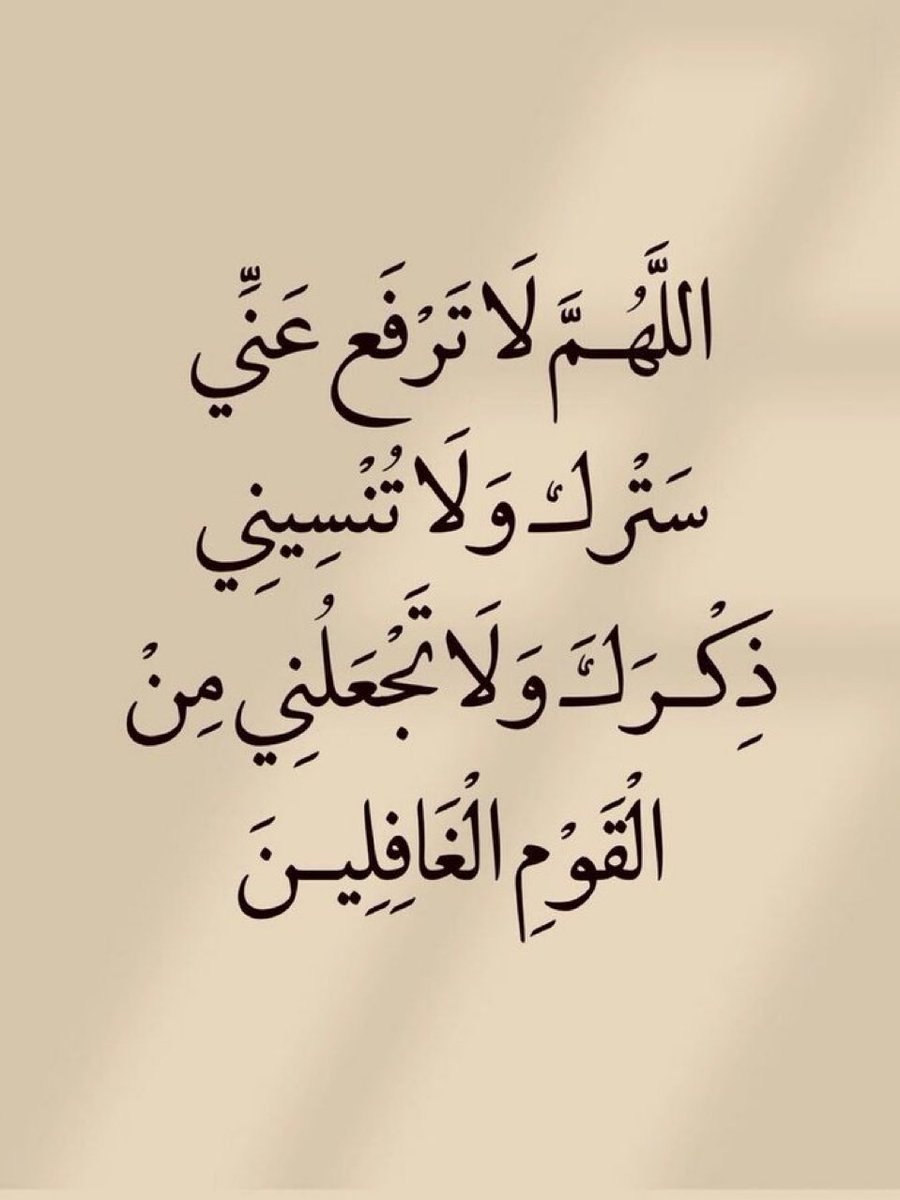 اللَّهُمَّ لَا تَرْفَع عَنِّي
سَتْرك وَلَا تُنْسِينِي
ذِكْرَكَ وَلَا تَجْعَلُنِي مِنْ
الْقَوْمِ الْغَافِلِينَ